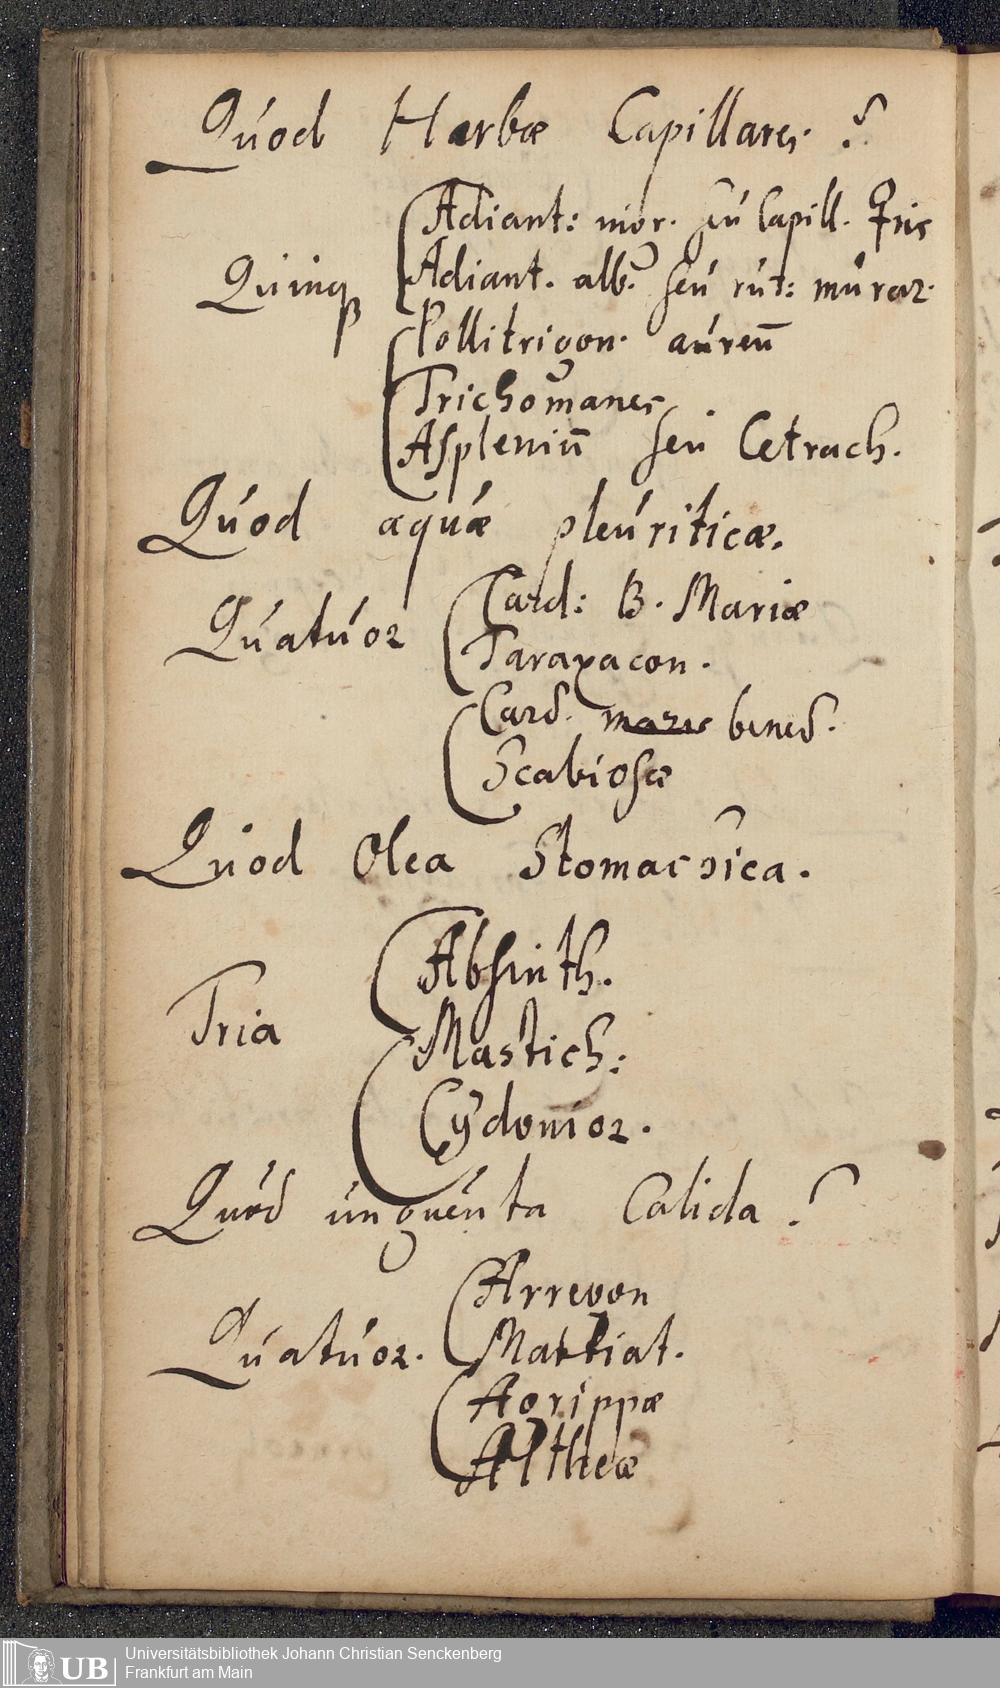 Quod Herbæ Capillares. ?
Adiant: nigr. seu Capill. ♀ris
Quinqꝫ Adiant. alb. seu rut: murar.
Pollitrigon. aureū
Trichomanes
Aspleniū seu Cetrach.
Quod aquæ pleuriticæ.
Card: B. Mariæ
Quatuor Taraxacon.
Card. bened.
Scabiosæ
Quod Olea Stomachica.
Absinth.
Tria Mastich:
Cydonior.
Quod unguenta Calida ?
Arregon
Quatuor. Martiat.
Agrippæ
Altheæ
Universitätsbibliothek Johann Christian Senckenberg
UB Frankfurt am Main